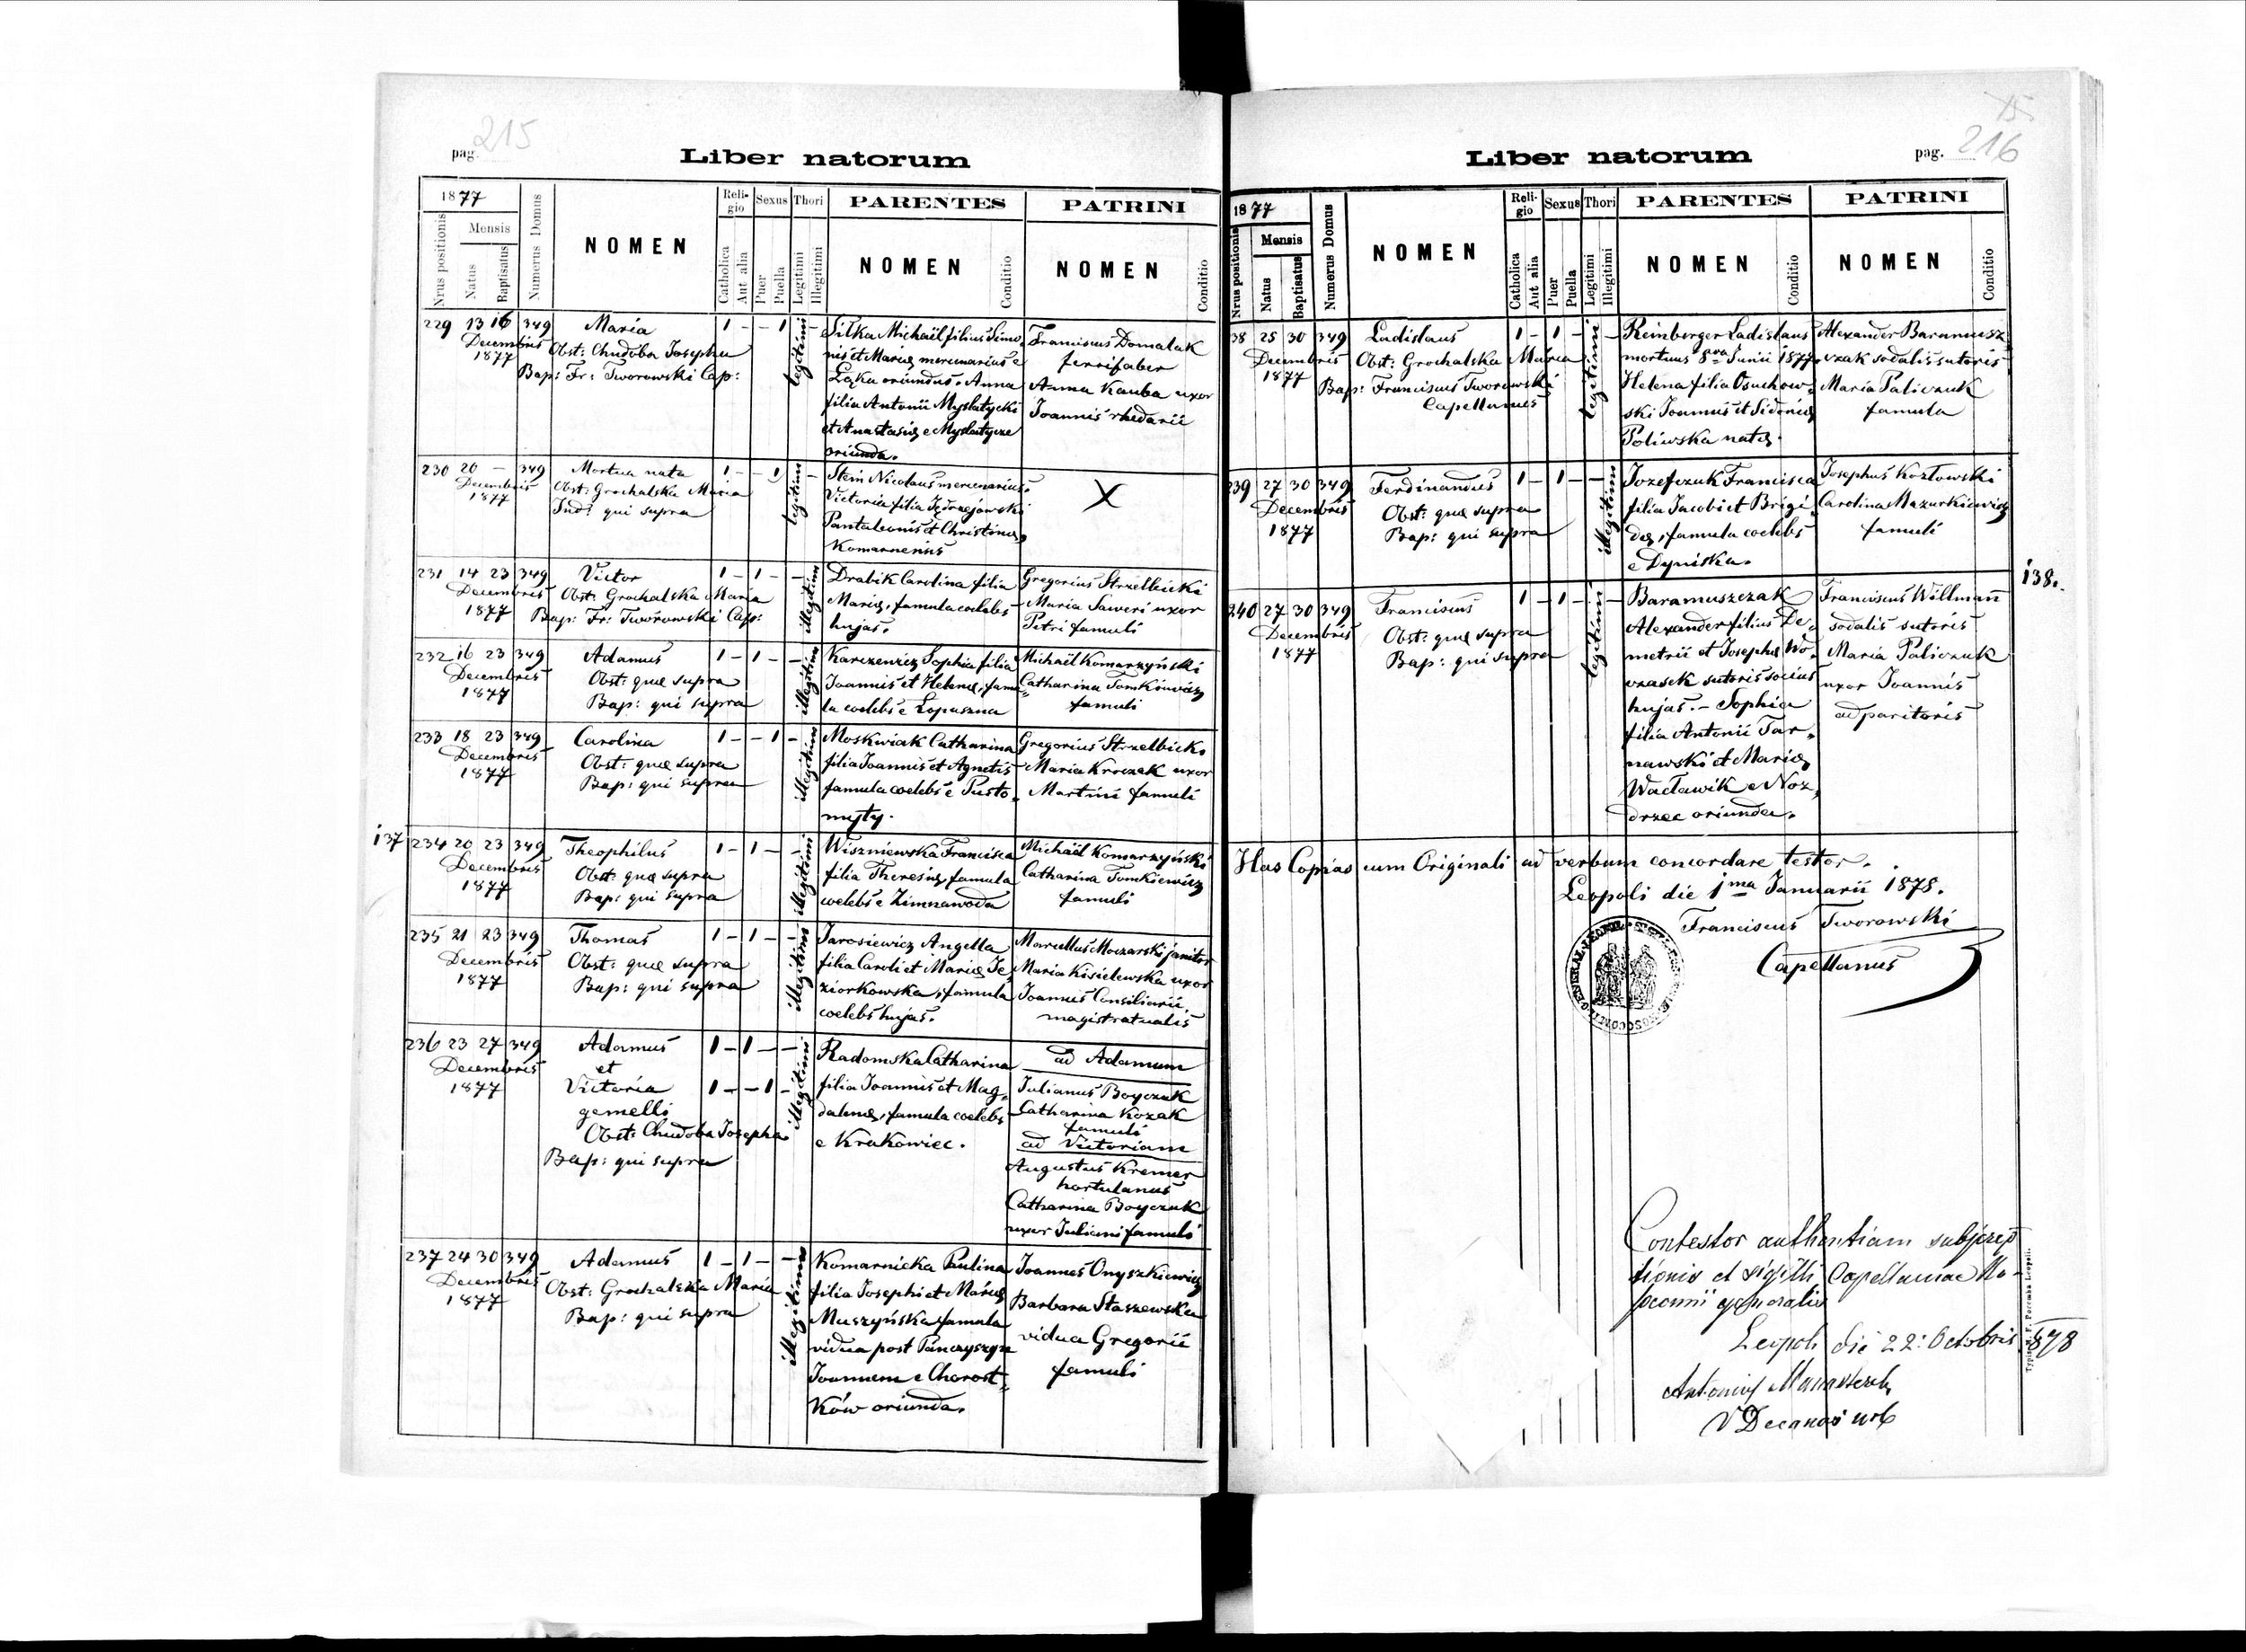 215
pag.
Liber natorum
1877
Mensis
Nrus positionis
Natus
Baptisatus
Numerus Domus
NOMEN
Religio
Catholica
Aut alia
Sexus
Puer
Puella
Thori
Legitimi
Illegitimi
PARENTES
NOMEN
Conditio
PATRINI
NOMEN
Conditio
229 13 16 349 Maria 1 - - 1 legitimi -
Decembris
1877
Obst: Chudoba Josepha
Bap: Fr: Tworowski Cap:
Silka Michaël filius Simo,
nis et Mariæ mercenarius e
Łąka oriundus. Anna
filia Antonii Mysłatycki
et Anastasiæ e Mysłatycze
oriunda.
Franciscus Domalak
ferrifaber
Anna Kauba uxor
Joannis rhedarii
230 20 - 349 Mortua nata 1 - - 1 legitimi -
Decembris
1877
Obst: Grochalska Maria
Ind: qui supra
Stein Nicolaus mercenarius.
Victoria filia Jędrzejowski
Pantaleonis et Christinæ,
Komarnensis
X
231 14 23 349 Victor 1 - 1 - - illegitimi
Decembris
1877
Obst: Grochalska Maria
Bap: Fr: Tworowski Cap:
Drabik Carolina filia
Mariæ, famula coelebs
hujas.
Gregorius Strzelbicki
Maria Saweri uxor
Petri famuli
232 16 23 349 Adamus 1 - 1 - - illegitimi
Decembris
1877
Obst: quæ supra
Bap: qui supra
Karczewicz Sophia filia
Joannis et Helenæ, famu
la coelebs e Łopuszna
Michaël Komarzyński
Catharina Tomkiewicz
famuli
233 18 23 349 Carolina 1 - - 1 - illegitimi
Decembris
1877
Obst: quæ supra
Bap: qui supra
Moskwiak Catharina
filia Joannis et Agnetis
famula coelebs e Pusto,
myty.
Gregorius Strzelbicki
Maria Kroczek uxor
Martini famuli
137
234 20 23 349 Theophilus 1 - 1 - - illegitimi
Decembris
1877
Obst: quæ supra
Bap: qui supra
Wiszniewska Francisca
filia Theresiæ, famula
coelebs e Zimnawoda
Michaël Komarzyński
Catharina Tomkiewicz
famuli
235 21 23 349 Thomas 1 - 1 - - illegitimi
Decembris
1877
Obst: quæ supra
Bap: qui supra
Jarosiewicz Angella
filia Caroli et Mariæ Je
ziorkowska, famula
coelebs hujas.
Marcellus Moczarski janitor
Maria Kisielewska uxor
Joannis Consiliarii
magistratualis
236 23 27 349 Adamus 1 - 1 - - illegitimi
Decembris
1877
et
Victoria 1 - - 1 -
gemelli
Obst: Chudoba Josepha
Bap: qui supra
Radomska Catharina
filia Joannis et Mag,
dalenæ, famula coelebs
e Krakowiec.
ad Adamum
Julianus Boyczuk
Catharina Kozak
famuli
ad Victoriam
Augustus Kremer
hortulanus
Catharina Boyczuk
uxor Juliani famuli
237 24 30 349 Adamus 1 - 1 - - illegitimi
Decembris
1877
Obst: Grochalska Maria
Bap: qui supra
Komarnicka Paulina
filia Josephi et Mariæ
Muszyńska famula
vidua post Panczyszyn
Joannem e Chorost,
ków oriunda.
Joannes Onyszkiewicz
Barbara Staszewska
vidua Gregorii
famuli
15
216
Liber natorum
pag.
1877
Mensis
Nrus positionis
Natus
Baptisatus
Numerus Domus
NOMEN
Religio
Catholica
Aut alia
Sexus
Puer
Puella
Thori
Legitimi
Illegitimi
PARENTES
NOMEN
Conditio
PATRINI
NOMEN
Conditio
38 25 30 349 Ladislaus 1 - 1 - legitimi -
Decembris
1877
Obst: Grochalska Maria
Bap: Franciscus Tworowski
Capellanus
Reinberger Ladislaus
mortuus 8va Junii 1877.
Helena filia Osuchow,
ski Joannis et Sidoniæ
Poliwska natæ.
Alexander Baramusz,
czak sodalis sutoris
Maria Paliczuk
famula
239 27 30 349 Ferdinandus 1 - 1 - - illegitimi
Decembris
1877
Obst: quæ supra
Bap: qui supra
Jozefczuk Francisca
filia Jacobi et Brigi,
dæ, famula coelebs
e Dyniska.
Josephus Kozłowski
Carolina Mazurkiewicz
famuli
138.
240 27 30 349 Franciscus 1 - 1 - legitimi -
Decembris
1877
Obst: quæ supra
Bap: qui supra
Baramuszczak
Alexander filius De,
metrii et Josephæ Wo,
czasek sutoris socius
hujas. - Sophia
filia Antonii Tar,
nawski et Mariæ
Wacławik e Noz,
drzec oriunda.
Franciscus Willmann
sodalis sutoris
Maria Paliczuk
uxor Joannis
adparitoris
Has Copias cum Originali ad verbum concordare testor.
Leopoli die 1ma Januarii 1878.
Franciscus Tworowski
Capellanus
Contestor authentiam subscrip
tionis et sigilli Capellaniae No-
socomii generalis
Leopoli die 22: Octobris 1878
Antonius
V Decanus urb